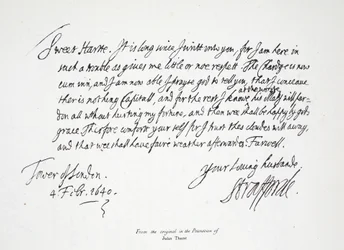 Sweet Harte. It is long since I writt unto you, for I am here in
such a trouble as gives me little or noe respett. The Chardge is now
cum inn, and I am now able I prayse god to tell you, that I conceave
ther is nothing Capitall, and for the rest I knowe at the worste his Maty will par-
don all without hurting my fortune, and then wee shall be happy by gods
grace. Therfore comfort your self, for I trust thes cloudes will away,
and that wee shall have faire weather afterwardes. Farewell.
Your loving husbande
Tower of London.
4. Febr. 1640.
Strafforde
From the original in the Possession of